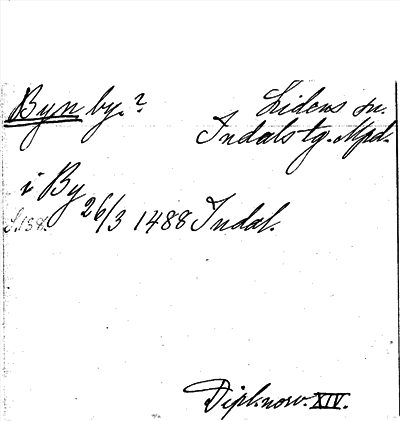 Byn by.? Lidens sn.
Indals tg. Mpd.
i By
S.138. 26/3 1488 Indal.
Dipl.norv. XIV.